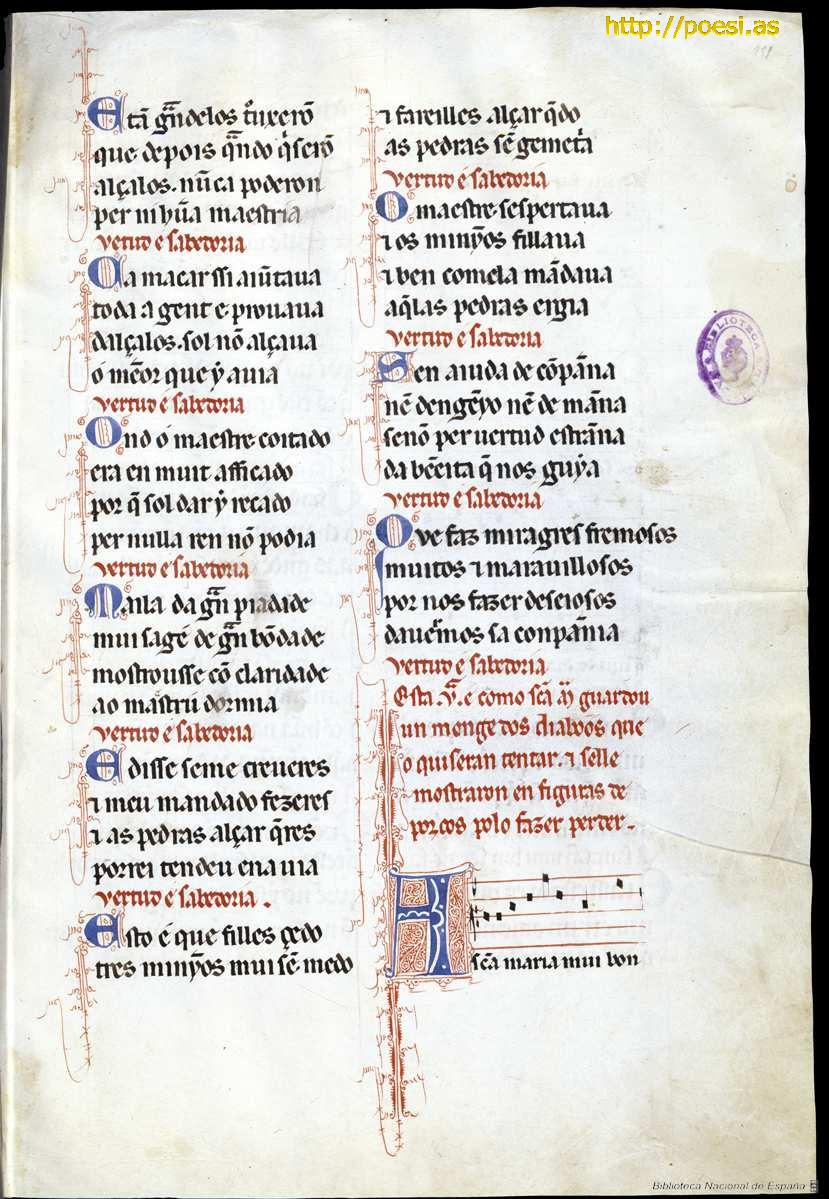 http://poesi.as
E tã gr̃ndelos tr̃uxerõ
que depois qr̃ndo q̇serõ
alçalos. nũca poderon
per nihũa maestria
vertud e sabedoria
Ca macar ssi aiũtaua
toda a gent e prouaua
dalçalos. sol nõ alçaua
o mẽor que ẏ auia
vertud e sabedoria
Ond o maestre coitado
era en muit afficado
por q̃ sol dar ẏ recado
per nulla ren nõ podia
vertud e sabedoria
Mai la da gr̃n piadade
mui sagẽ de gr̃n bõdade
mostrousse cõ claridade
ao mastru dormia
vertud e sabedoria
E disse se me creueres
⁊ meu mandado fezeres
⁊ as pedras alçar q̃res
porrei ten deu ena uia
vertud e sabedoria
Esto é que filles çedo
tres minỹos mui sẽ medo
⁊ fareilles alçar q̃do
as pedras sẽ gemetr̃a
vertud e sabedoria
O maestre. sespertaua
⁊ os minỹos fillaua
⁊ ben comela mãdaua
aq̃las pedras ergia
vertud e sabedoria
Sen aiuda de cõpãna
nẽ dengẽyo nẽ de mãna
senõ per uertud estrãna
da bẽeita q̃ nos guẏa
vertud e sabedoria
O ve faz miragres fremosos
muitos ⁊ marauillosos
por nos fazer deseiosos
dauer̃mos sa conpãnia
vertud e sabedoria
Esta .vͣ. e como scã mͣ guardou
un monge dos diabões que
o quiseran tentar. ⁊ selle
mostraron en figuras de
porcos polo fazer perder.
A scã maria mui bon
Biblioteca Nacional de España